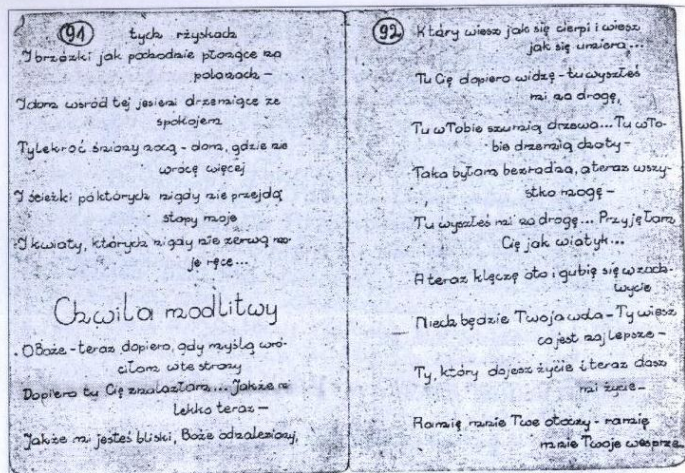 91
tych rżyskach
I brzózki jak pochodnie płonące na
polanach –
I dom wśród tej jesieni drzemiące ze
spokojem
Tylekroć śniony nocą – dom, gdzie nie
wrócę więcej
I ścieżki po których nigdy nie przejdą
stopy moje
I kwiaty, których nigdy nie zerwą mo
je ręce...
Chwila modlitwy
O Boże – teraz dopiero, gdy myślą wró-
ciłam w te strony
Dopiero tu Cię znalazłam... Jakże mi
lekko teraz –
Jakże mi jesteś bliski, Boże odnaleziony,
92
Który wiesz jak się cierpi i wiesz
jak się umiera...
Tu Cię dopiero widzę – tu wyszłeś
mi na drogę,
Tu w Tobie szumią drzewa... Tu w To-
bie drzemią chaty –
Taka byłam bezradna, a teraz wszy-
stko mogę –
Tu wyszłeś mi na drogę... Przyjęłam
Cię jak wiatyk...
A teraz klęczę oto i gubię się w zach-
wycie
Niech będzie Twoja wola – Ty wiesz
co jest najlepsze –
Ty, który dajesz życie i teraz dasz
mi życie –
Ramię mnie Twe otoczy – ramię
mnie Twoje wesprze